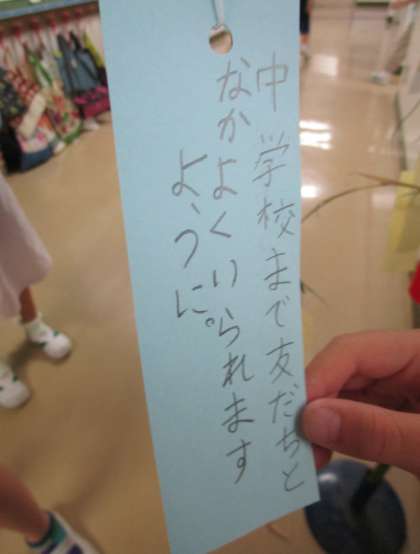 中学校まで友だちと
なかよくいられます
ように。